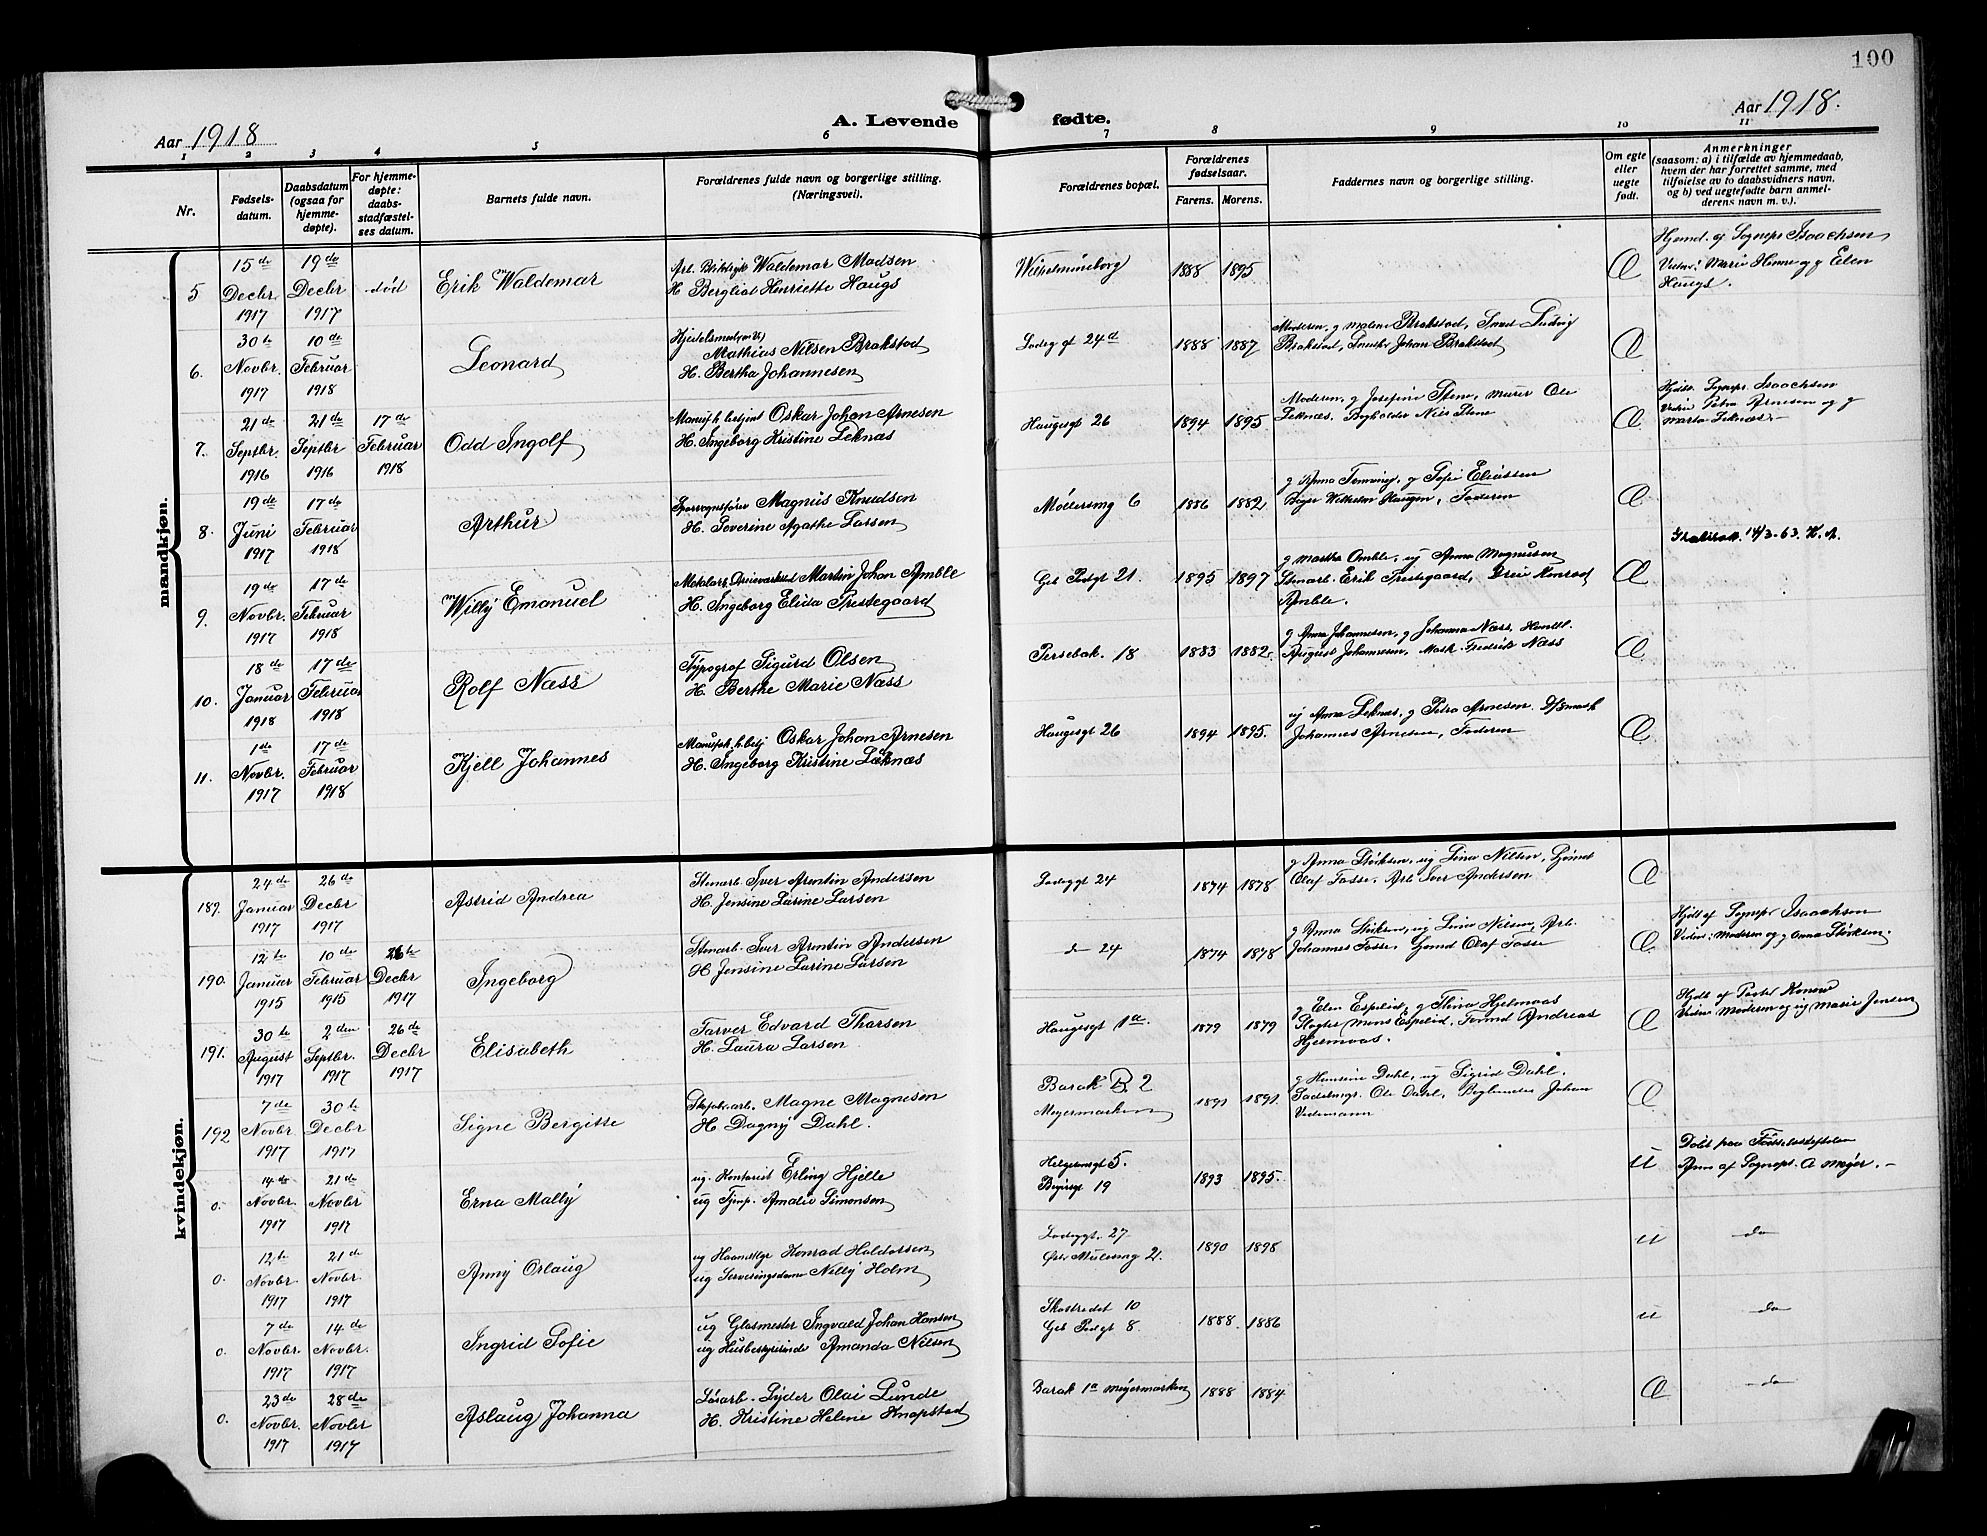 100
Aar 1918
A. Levende fødte.
Aar 1918.
1 2 3 4 5 6 7 8 9 10 11
Nr.
Fødsels-
datum.
Daabsdatum
(ogsaa for
hjemme-
døpte).
For hjemme-
døpte:
daabs-
stadfæstel-
ses datum.
Barnets fulde navn.
Forældrenes fulde navn og borgerlige stilling.
(Næringsvei).
Forældrenes bopæl.
Forældrenes
fødselsaar.
Farens. Morens.
Faddernes navn og borgerlige stilling.
Om egte
eller
uegte
født.
Anmerkninger
(saasom: a) i tilfælde av hjemmedaab,
hvem der har forrettet samme, med
tilføielse av to daabsvidners navn,
og b) ved uegtefødte barn anmel-
derens navn m. v.).
mandkjøn.
5
15 de
Decbr
1917
19 de
Decbr
1917
død
Erik Waldemar
Waldemar Madsen
H. Bergliot Henriette Haugs
Wilhelmineborg
1888 1895
Æ
Hjemd. af Sognepr Isaachsen
Vidner: Marie Hinne og g Elen
Haugs.
6.
30 te
Novbr.
1917
10 de
Februar
1918
Leonard
Mathias Nilsen Brakstad
H. Bertha Johannesen
Ladeg gt 24 d
1888 1887
Moderen, g Malene Brakstad, Smed Ludvig
Brakstad, Snedker Johan Brakstad
Æ
7.
21 de
Septbr.
1916
21 de
Septbr
1916
17 de
Februar
1918
Odd Ingolf
Manufk. betjent Oskar Johan Arnesen
H. Ingeborg Kristine Leknæs
Haugesgt 26
1894 1895
Moderen, g Josefine Stene, Murer Ole
Leknæs, Nils Stene
Æ
Hjdbt. Sognepr. Isaachsen
Vidn. Petra Arnesen og g
Marta Leknæs.
8.
19 de
Juni
1917
17 de
Februar
1918
Arthur
Sporvognsfører Magnus Knudsen
H. Severine Agathe Larsen
Møllersmg 6
1886 1882
g Anna g Sofie Eliassen
Wilhelm Haugen, Faderen
Æ
14/3-63.
9.
19 de
Novbr.
1917
17 de
Februar
1918
Willy Emanuel
Martin Johan Amble
H. Ingeborg Elida Prestegaard
Gb Pedgt 21.
1895 1897
g Martha Amble, ug Anna Magnusen
Stenarb. Erik Prestegaard, Konrad
Amble.
Æ
10.
18 de
Januar
1918
17 de
Februar
1918
Rolf Næss
Typograf Sigurd Olsen
H. Berthe Marie Næss
Persebak. 18
1883 1882
g Anna Johannesen, g Johanna Næss, Handl.
August Johannesen, Mask. Fredrik Næss
Æ
11.
1 de
Novbr.
1917
17 de
Februar
1918
Kjell Johannes
Manufk. h. betj Oskar Johan Arnesen
H. Ingeborg Kristine Leknæs
Haugesgt 26
1894 1895.
ug Anna Leknæs, g Petra Arnesen.
Johannes Arnesen, Faderen
Æ
kvindekjøn.
189.
24 de
Januar
1917
26 de
Decbr
1917
Astrid Andrea
Stenarb. Iver Arentin Andersen
H. Jensine Larine Larsen
Ladeggt 24
1874 1878
g Anna Störksen, ug Lina Nilsen,
Olaf Fosse, Arb Iver Andersen
Æ
190.
12 te
Januar
1915
10 de
Februar
1915
26 te
Decbr
1917
Ingeborg
Stenarb. Iver Arentin Andersen
H. Jensine Larine Larsen
do 24
1874 1878
g Anna Störksen, ug Lina Nilsen, Arb.
Johannes Fosse, Olaf Fosse
Æ
Hjdbt af Sognepr Isaachsen
Vidner: Moderen og g Anna Störksen.
191.
30 te
August
1917
2 den
Septbr.
1917
26 de
Decbr
1917
Elisabeth
Farver Edvard Thorsen
H. Laura Larsen
Haugesgt 1a.
1879 1879
g Elen Espelid, g Thina Hjelmaas
Slagter Mons Espelid, Andreas
Hjelmaas.
Æ
Hjdbt af Pastor Konow
Vidne Moderen og ug Marie Jensen
192
7 de
Novbr
1917
30 te
Decbr
1917
Signe Bergitte
Magne Magnesen
H Dagny Dahl.
Barak B. 2
Meyermarken
1891 1891.
g Hansine Dahl, ug Sigrid Dahl,
Sadelmgr. Ole Dahl, Johan
Vedemann
Æ
0.
14 de
Novbr.
1917
21 de
Novbr
1917
Erna Mally
ug. Kontorist Erling Hjelle
ug Tjnp. Amalie Simonsen
Helgesensgt 5.
19
1893 1895.
U
Døbt paa Fødselsstiftelsen
Sognepr. A Meyer.
0.
12 te
Novbr.
1917
21 de
Novbr.
1917
Anny Orlaug
ug Konrad Haldorsen
ug Serveringsdame Nelly Holm
Ladeggt. 27
Øvr Mulesmg 2.
1890 1898
U
do
0.
7 de
Novbr.
1917
14 de
Novbr.
1917
Ingrid Sofie
ug Glasmester Ingvald Johan Hansen
ug Husbestyrerinde Amanda Nilsen
Skostredet 10
Gb Pedgt 8.
1888. 1886
U
do
0.
23 de
Novbr.
1917
28 de
Novbr
1917
Aslaug Johanna
Løsarb. Lyder Olai Lunde
H. Kristine Helene Knapstad
Barak 1a Meyermarken
1888 1884
Æ
do